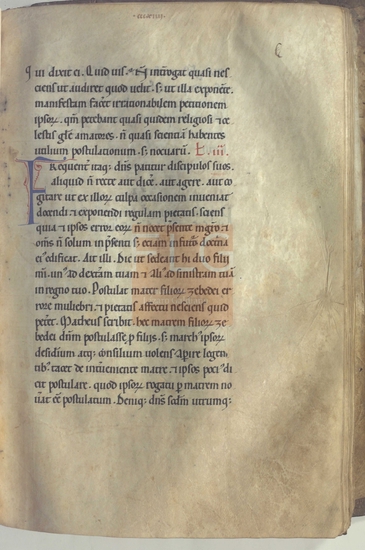 Qui dixit ei. Quid vis. Non interrogat quasi nes
ciens ut audiret quod velit. s; ut illa exponente.
manifestam faceret irrationabilem peticionem
ipsor. quam petebant quasi quidem religiosi et ce
lestis glē amatores. n quasi scientiā habentes
utilium postulacionum. s; nocuarū. L. iii.
Frequent itaq; dns patitur discipulos suos.
aliquid n recte aut dicē. aut agere. aut co
gitare ut ex illorz culpa occasionem inveniat
docendi et exponendi regulam pietatis. sciens
quia et ipsos error eorz n nocet psente mgrō et
oms n solum in psenti s; etiam infuturo doctrina
ei edificat. Ait illi. Dic ut sedeant hi duo filii
mi. un ad dextram tuam et ali ad sinistram tuā
in regno tuo. Postulat mater filiorz zebedei er
rore muliebri et pietatis affectu nesciens quid
petet. Matheus scribit. hec matrem filiorz ze
bedei dnm postulasse p filiis. s; march ipsorz
desiderium atq; consilium volens apire legen
tib tacet de interveniente matre. et ipsos poci di
cit postulare. quod ipsorz rogatu p matrem no
vat eē postulatum. Deniq; dns scdm utrumq;